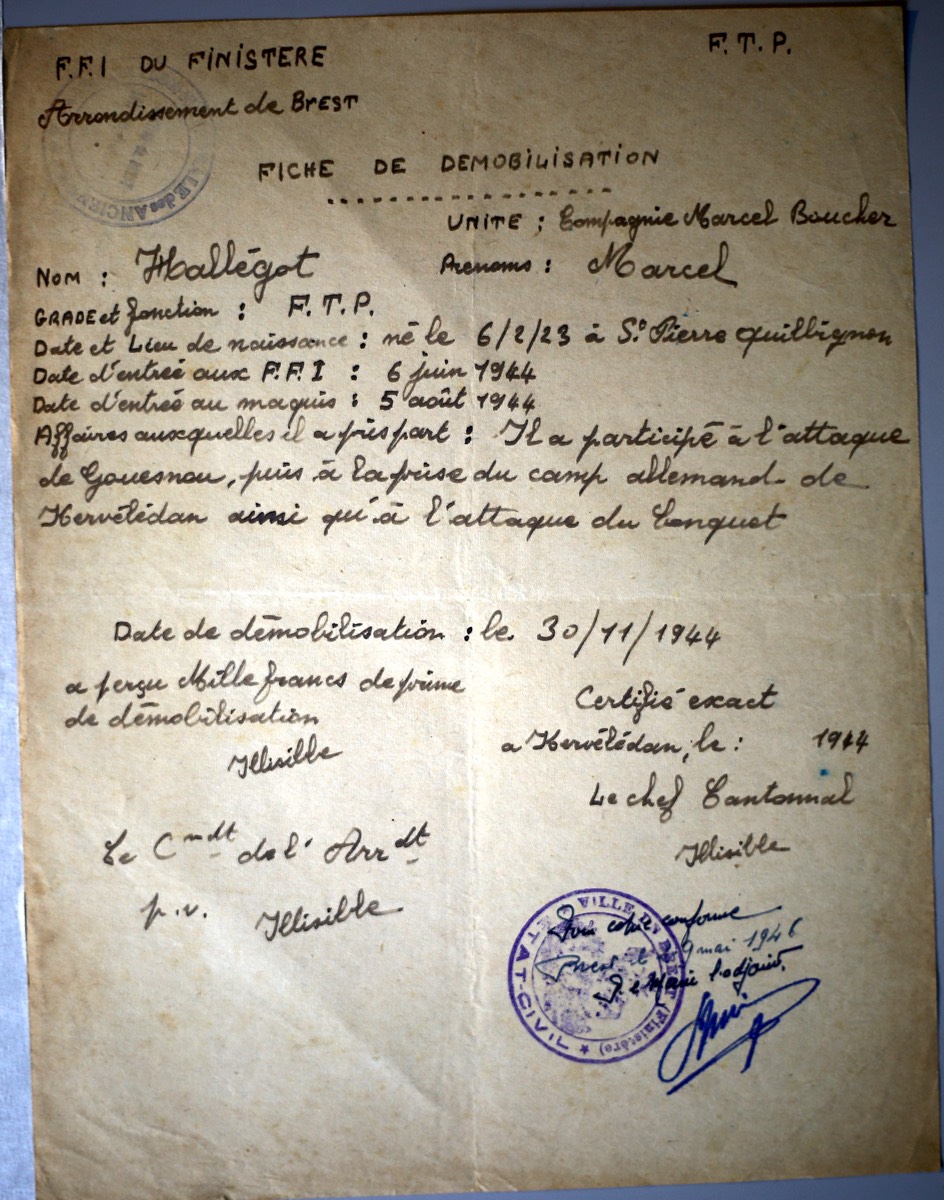 F.F.I DU FINISTERE
F.T.P.
Arrondissement de BREST
FICHE DE DEMOBILISATION
UNITE : Compagnie Marcel Boucher
NOM : Hallégot
Prenoms : Marcel
GRADE et fonction : F.T.P.
Date et Lieu de naissance : né le 6/2/23 à St Pierre Quilbignon
Date d'entrée aux F.F.I : 6 juin 1944
Date d'entrée au maquis : 5 août 1944
Affaires auxquelles il a pris part : Il a participé à l'attaque
de Gouesnou, puis à la prise du camp allemand de
Kervélédan ainsi qu'à l'attaque du Conquet
Date de démobilisation : le 30/11/1944
a perçu Mille francs de prime
de démobilisation
Illisible
Certifié exact
a Kervélédan, le : 1944
Le chef Cantonnal
Illisible
Le Cmdt de l'Arrdt
p.v. Illisible
Pour copie conforme
Brest le 9 mai 1946
P. le Maire l'adjoint.
VILLE DE BREST (Finistère) * ETAT-CIVIL
des ANCIEN